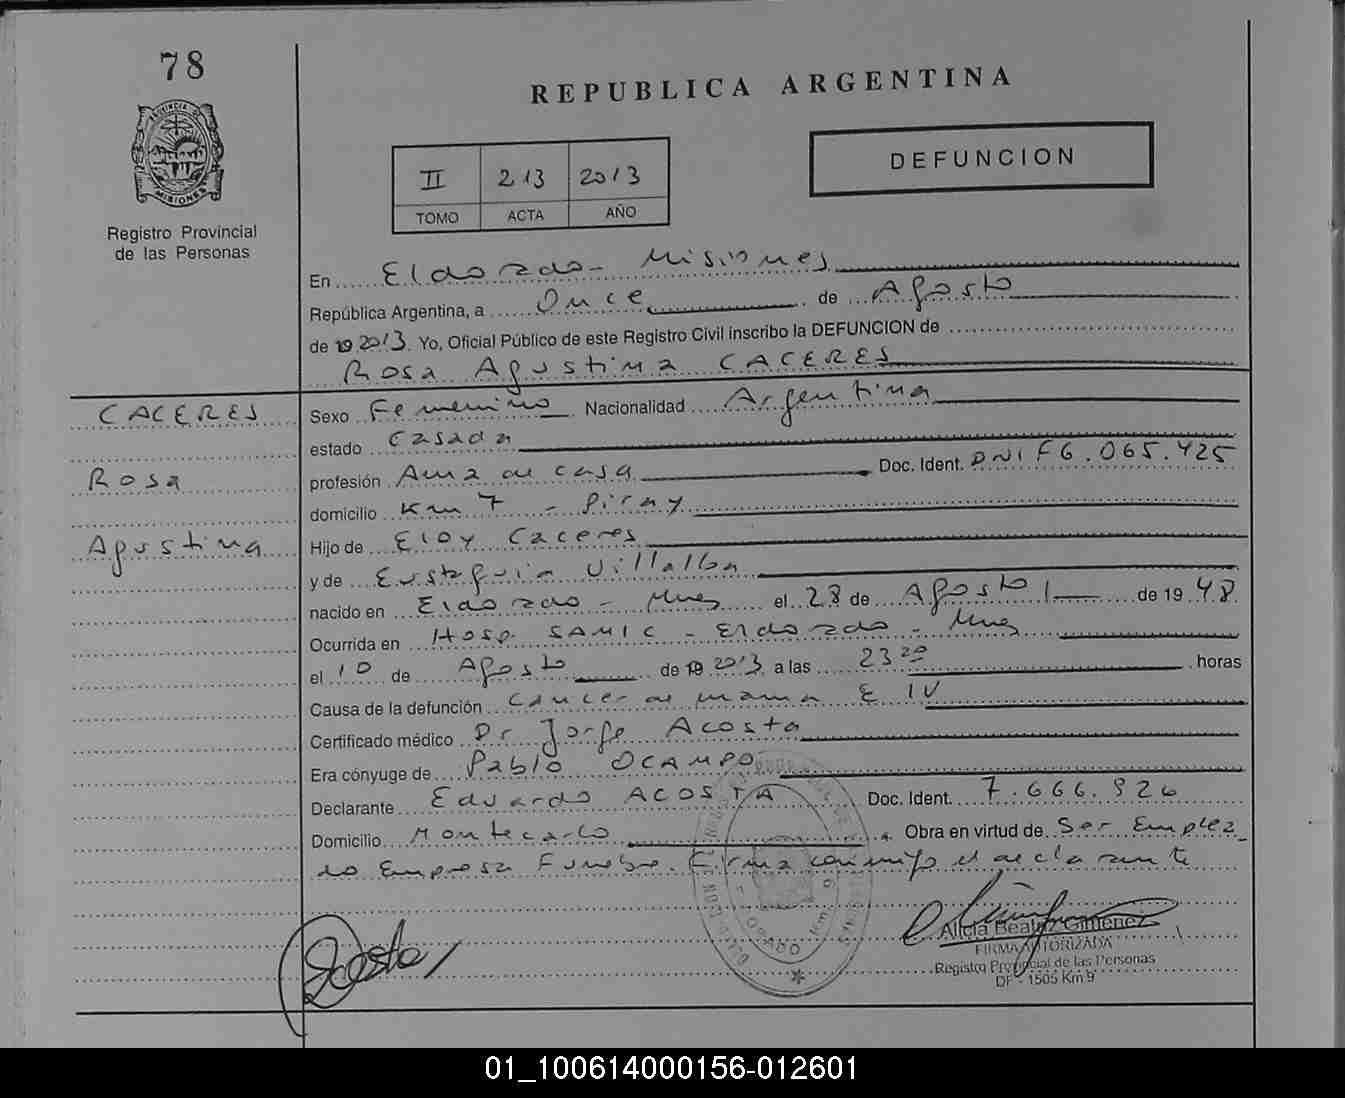 78
REPUBLICA ARGENTINA
PROVINCIA DE
MISIONES
Registro Provincial
de las Personas
II 213 2013
TOMO ACTA AÑO
DEFUNCION
En Eldorado - Misiones
República Argentina, a Once de Agosto
de 19 2013. Yo, Oficial Público de este Registro Civil inscribo la DEFUNCION de
Rosa Agustina CACERES
CACERES
Rosa
Agustina
Sexo Femenino Nacionalidad Argentina
estado Casada
profesión Ama de casa Doc. Ident. DNI F6.065.425
domicilio Km 7 - Piray
Hijo de Eloy Caceres
y de Eustaquia Villalba
nacido en Eldorado - Mnes el 28 de Agosto de 1948
Ocurrida en Hosp. SAMIC - Eldorado - Mnes
el 10 de Agosto de 19 2013 a las 23 20 horas
Causa de la defunción Cancer de mama E IV
Certificado médico Dr Jorge Acosta
Era cónyuge de Pablo OCAMPO
Declarante Eduardo ACOSTA Doc. Ident. 7.666.926
Domicilio Montecarlo Obra en virtud de Ser Emplea
do Empresa Funebre. Firma conmigo el declarante
Acosta
Alicia Beatriz Gimenez
FIRMA AUTORIZADA
Registro Provincial de las Personas
DF - 1505 Km 9
01_100614000156-012601